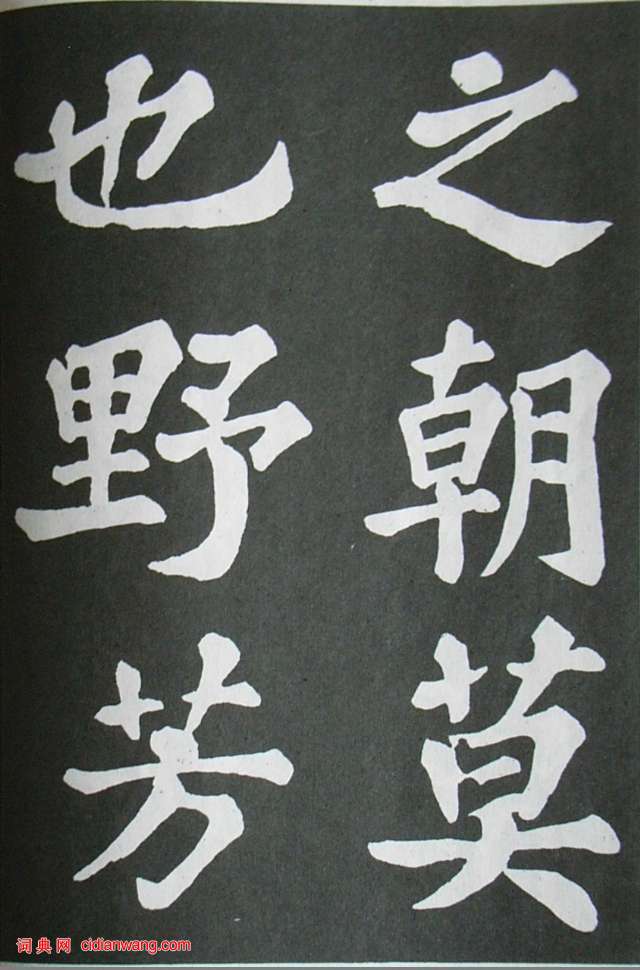 之朝莫
也野芳
词典网 cidianwang.com